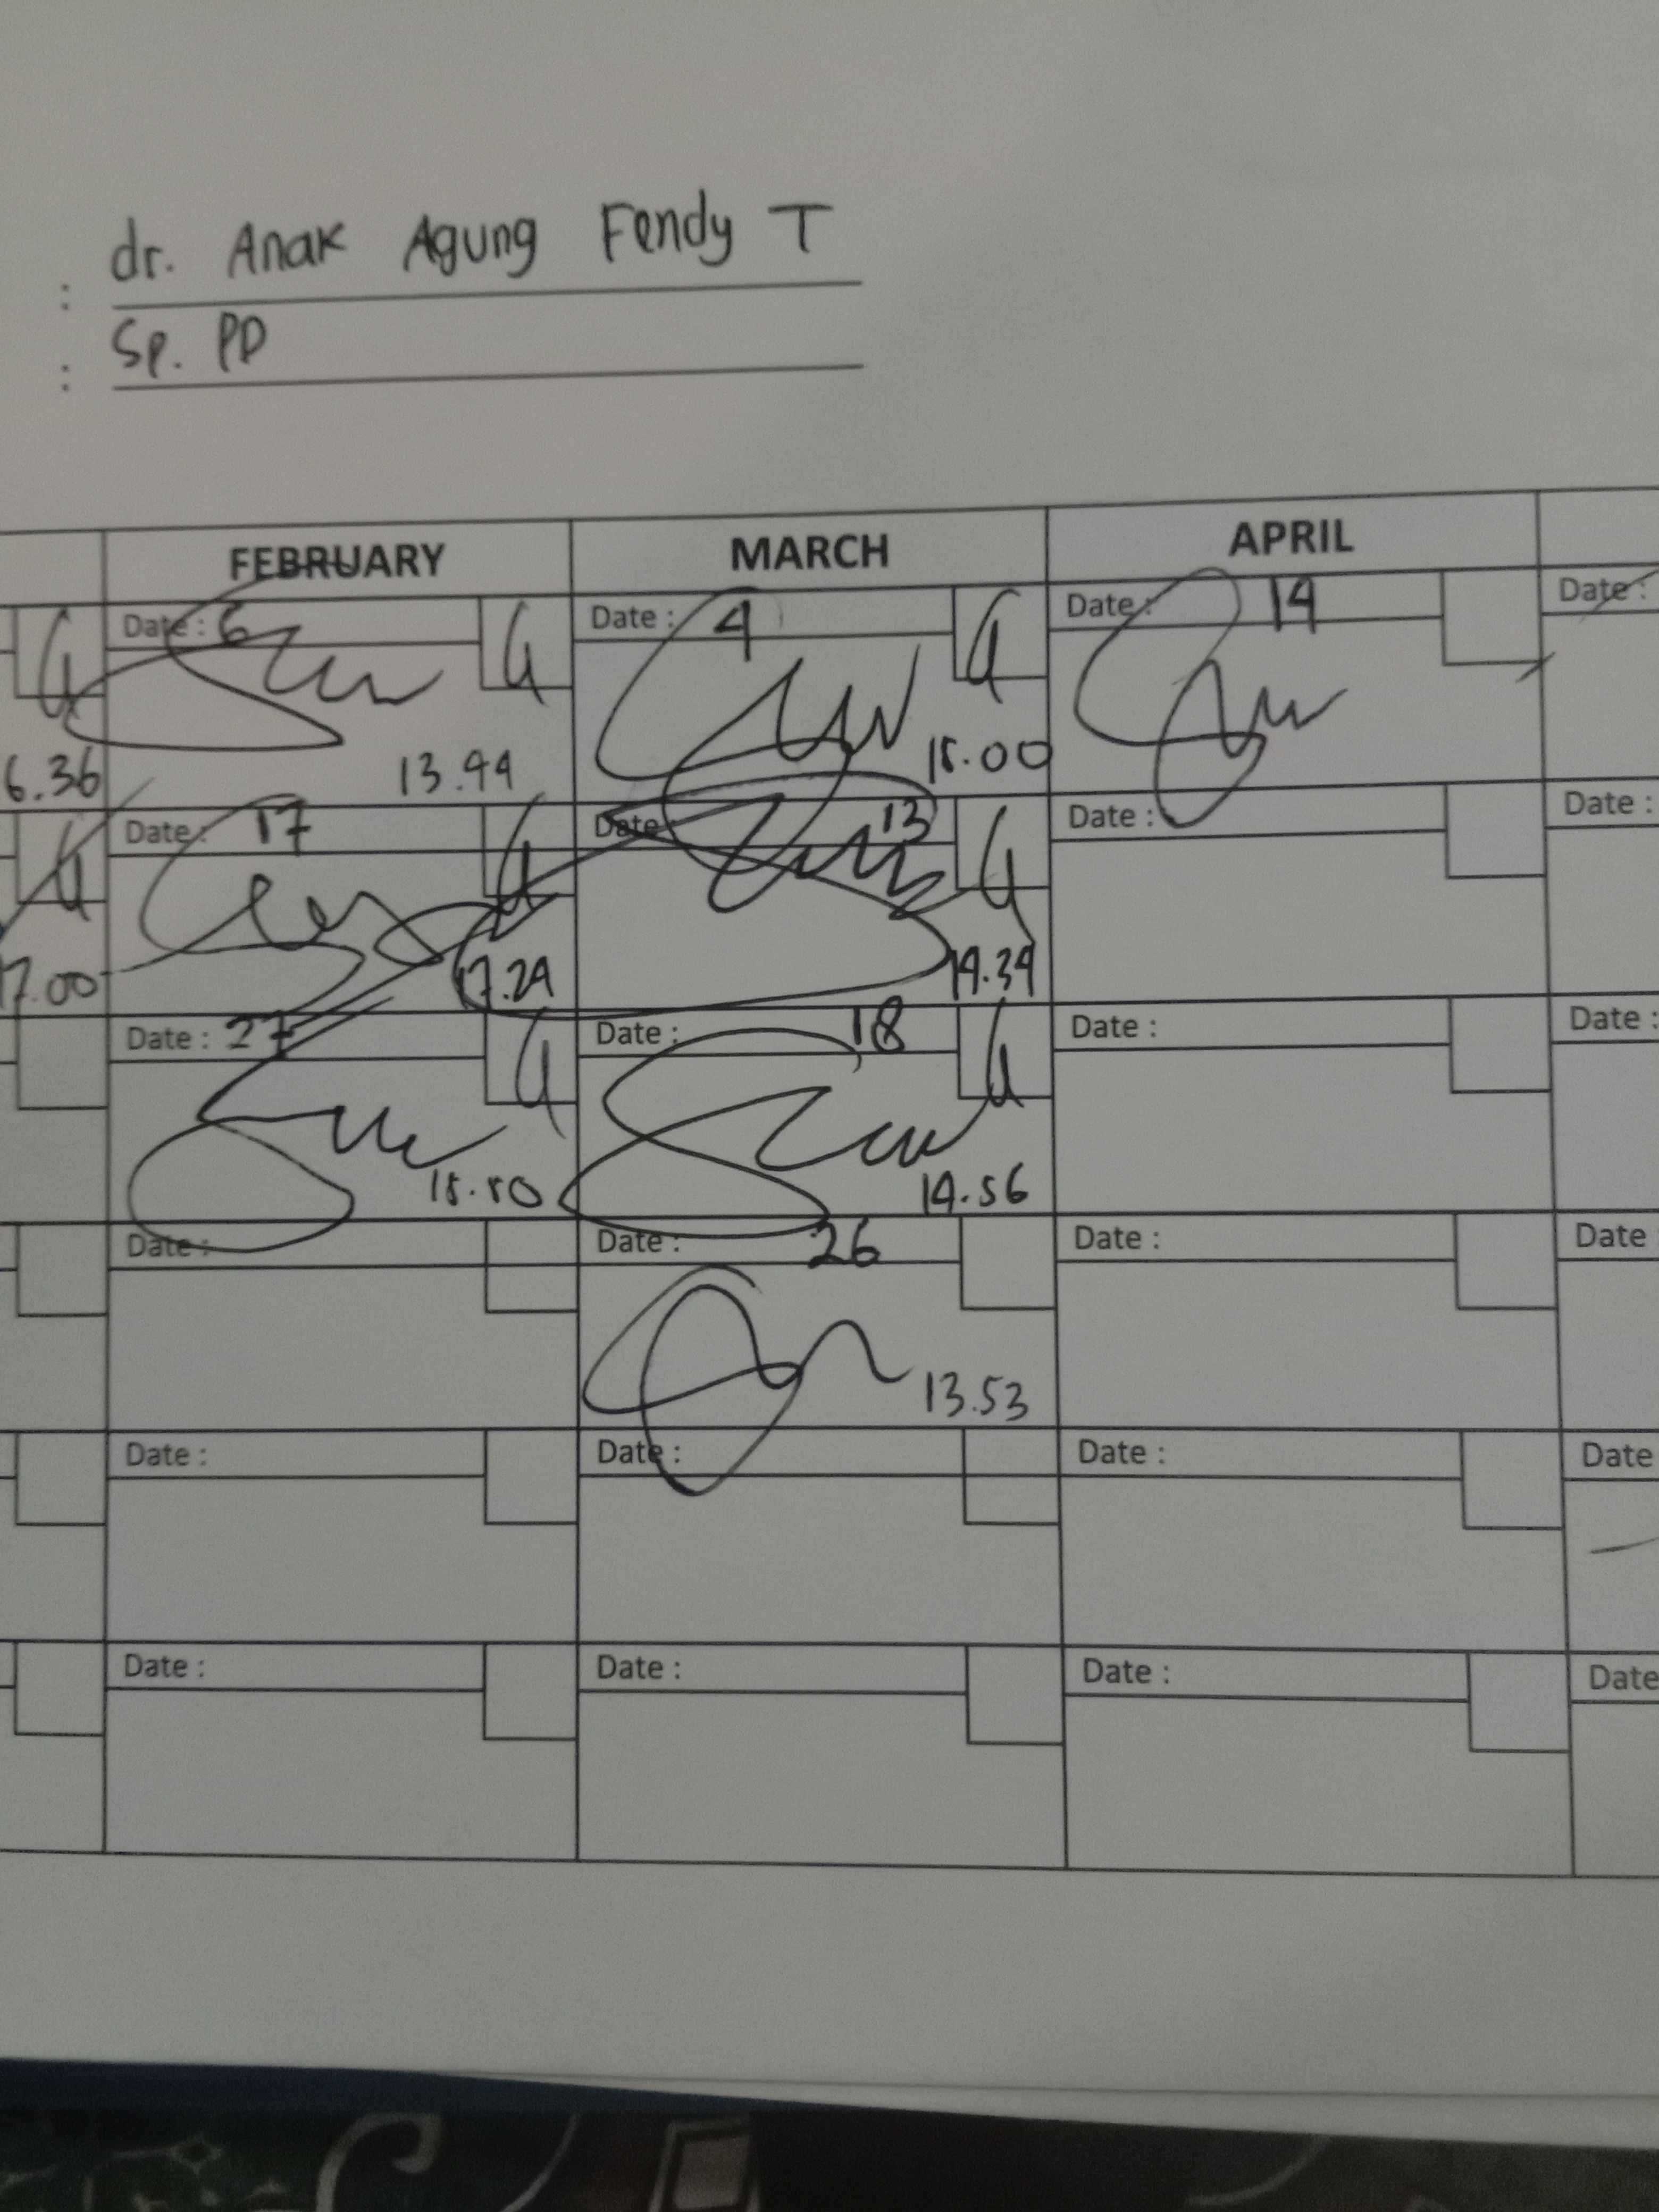 : dr. Anak Agung Fendy T
: Sp. PD
FEBRUARY MARCH APRIL
Date : 6 Date : 4 Date : 14 Date :
6.36 13.44 15.00
Date : 17 Date : 13 Date : Date :
17.00 17.24 14.34
Date : 27 Date : 18 Date : Date :
15.50 14.56
Date : Date : 26 Date : Date
13.53
Date : Date : Date : Date
Date : Date : Date : Date